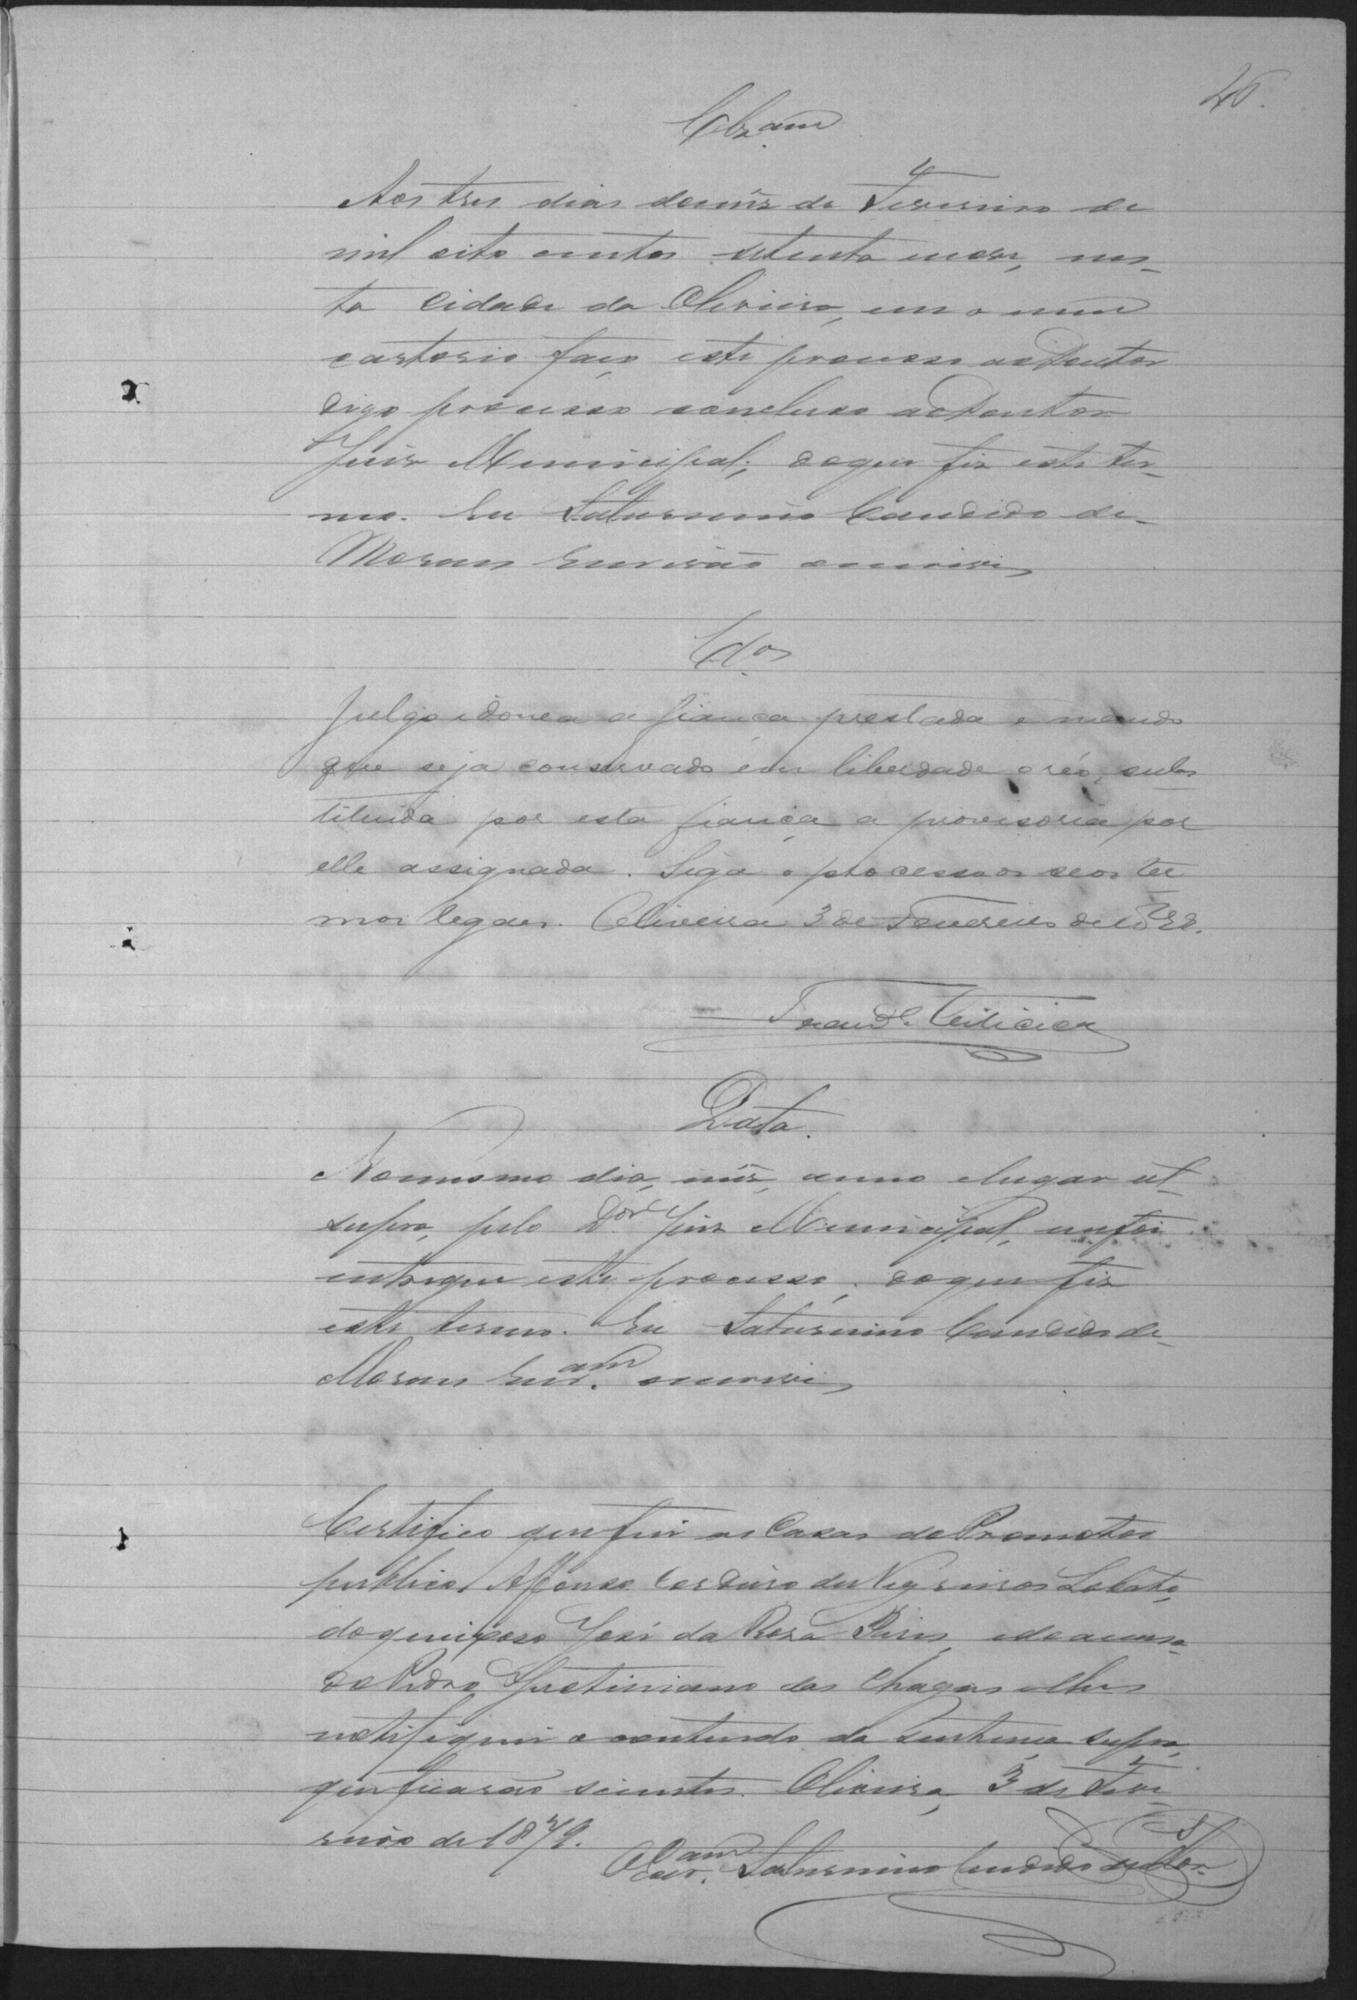 26.
Cl.am
Aos tres dias do mez de Fevereiro de
mil oito centos setenta e nove, nes-
ta Cidade da Oliveira, em o meu
cartorio faço este processo ao Doutor
digo processo concluso ao Doutor
Juiz Municipal; do que fiz este ter-
mo. Eu Saturnino Candido de
Moraes Escrivão o escrevi
Cl.os
Julgo idonea a fiança prestada e mando
que seja conservado em liberdade o réo, subs
tituida por esta fiança a provisoria por
elle assignada. Siga o processo os seos ter
mos legaes. Oliveira 3 de Fevereiro de 1879.
Data.
No mesmo dia, mez, anno e lugar ut
supra, pelo D.or Juiz Municipal, me foi
entregue este processo, do que fiz
este termo. Eu Saturnino Candido de
Moraes Escr.am o escrevi
Certifico que fui as Casas do Promotor
publico Affonso Cordeiro de Negreiros Lobato,
do queixoso José da Rosa Pires, e do accusa
do Pedro Justiniano das Chagas e lhes
notifiquei o conteudo da Sentença supra,
que ficarão scientes. Oliveira, 3 de Feve
reiro de 1879.
O Escr.am Saturnino Candido de Mor.s